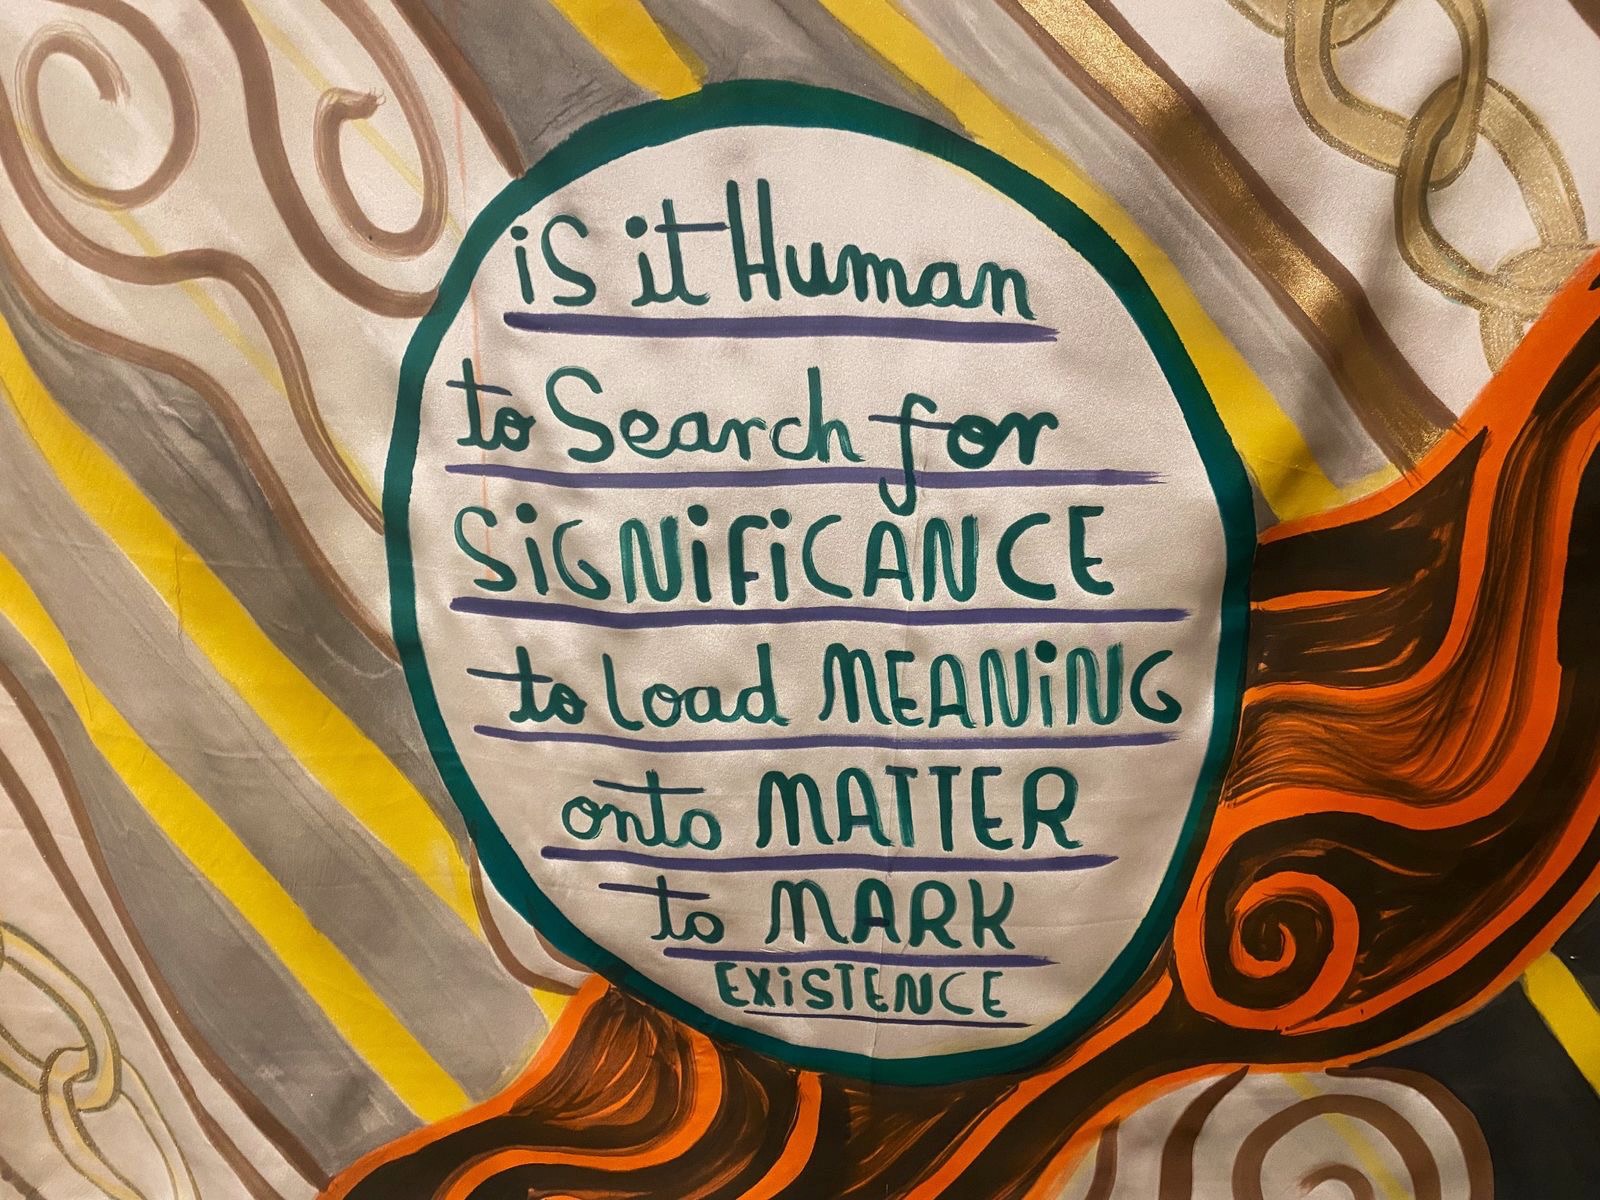 is it Human
to Search for
SiGNiFiCANCE
to load MEANiNG
onto MATTER
to MARK
EXiSTENCE